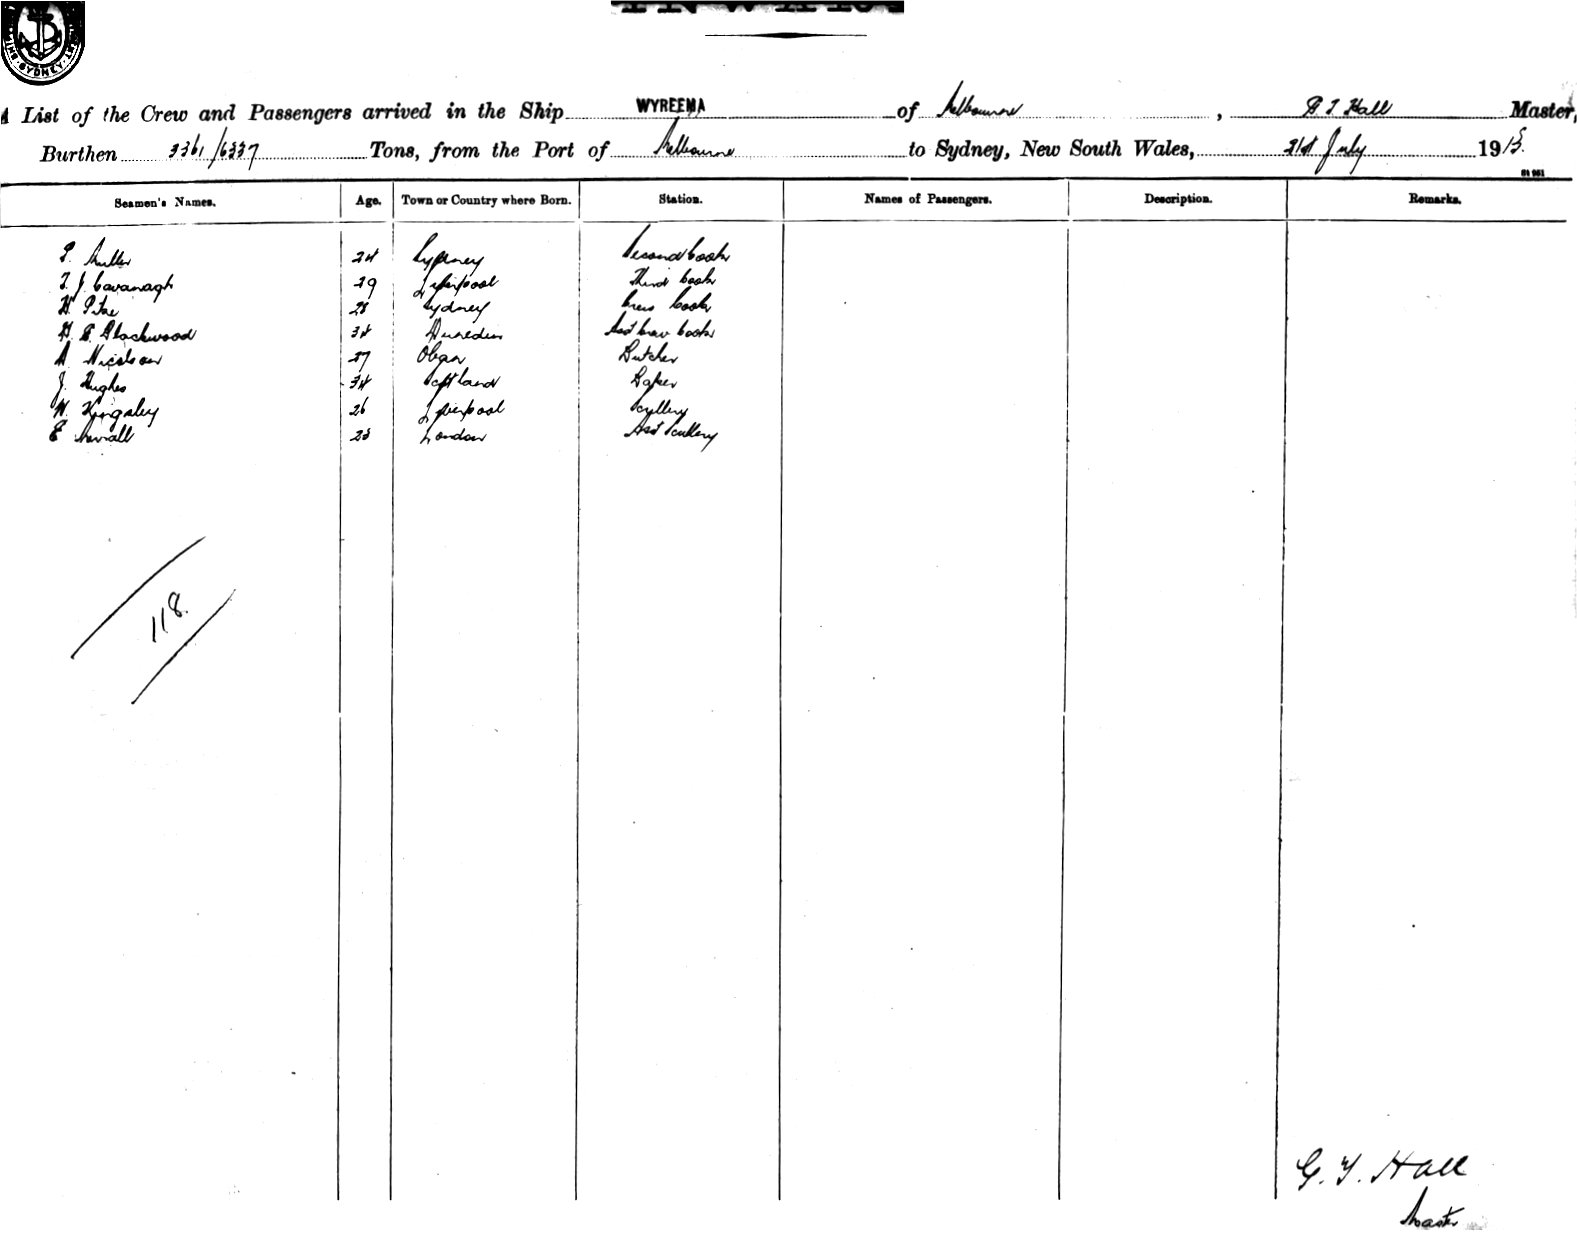 SYDNEY
INWARDS
A List of the Crew and Passengers arrived in the Ship WYREEMA of Melbourne, G. T. Hall Master,
Burthen 3361/6337 Tons, from the Port of Melbourne to Sydney, New South Wales, 21st July 1915.
Seamen's Names. Age. Town or Country where Born. Station. Names of Passengers. Description. Remarks.
24 Sydney Second cook
T. J. Cavanagh 29 Liverpool Third cook
H. 28 Sydney Crew cook
Blackwood 34 Dunedin Asst Crew cook
A Nicolson 27 Oban Butcher
J. Hughes 34 Scotland Baker
W. Kingsley 26 Liverpool Scullery
E 23 London Asst Scullery
118.
G. T. Hall
Master